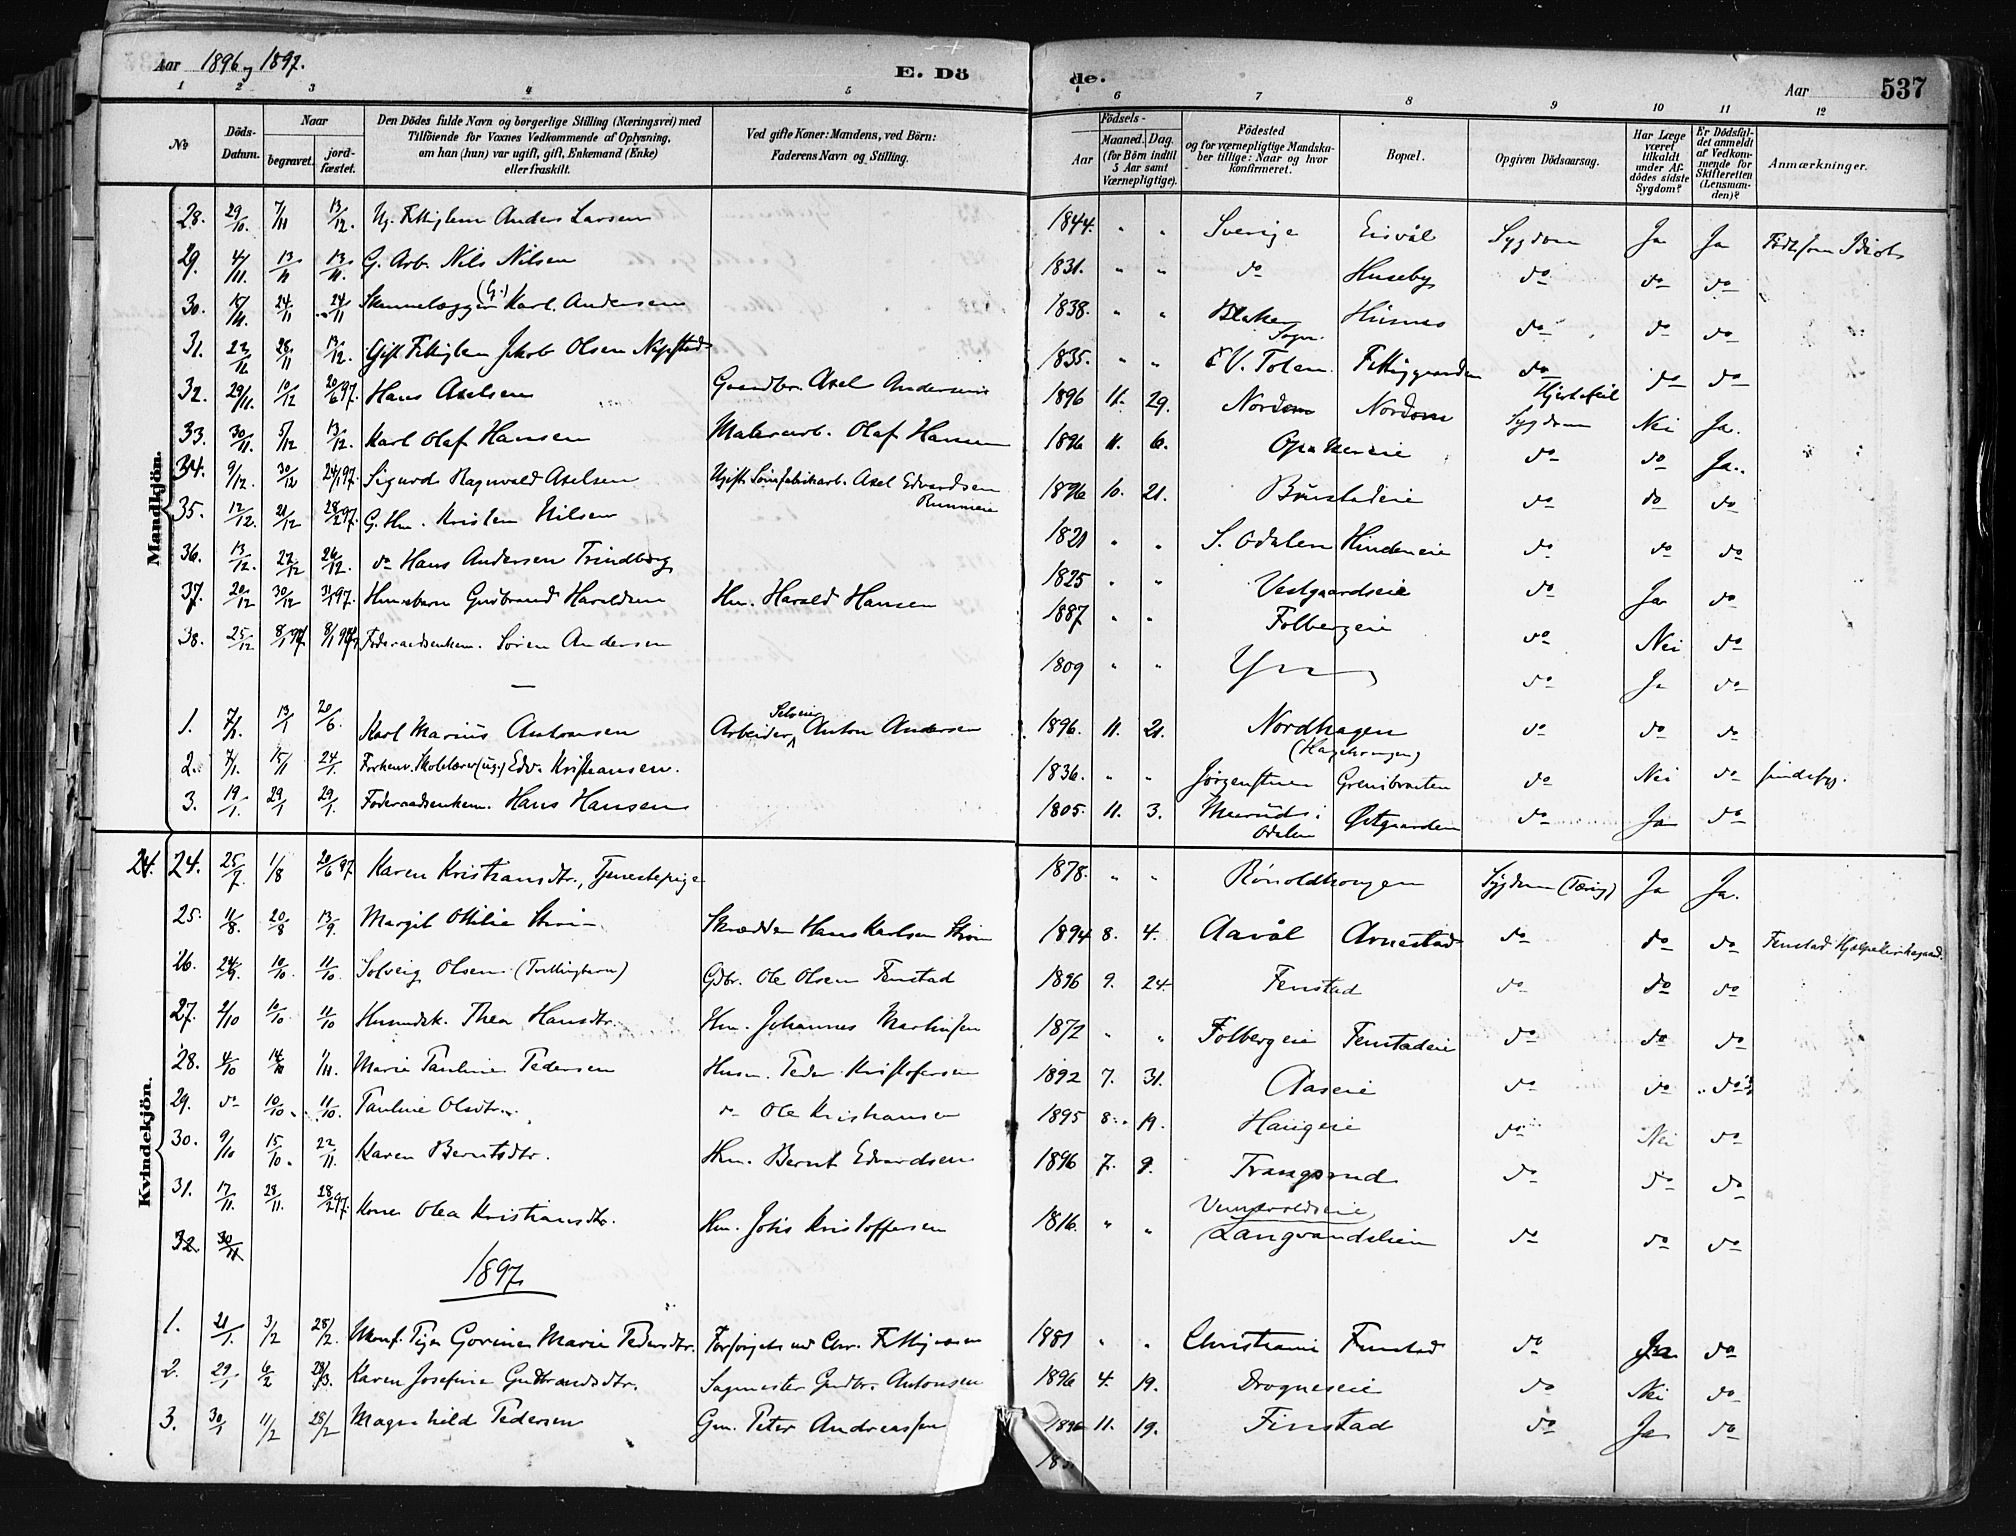 Aar 1896 og 1897. E. Dö de. Aar 537
1 2 3 4 5 6 7 8 9 10 11 12
No Döds-Datum. Naar begravet. jordfæstet. Den Dödes fulde Navn og borgerlige Stilling (Næringsvei) med Tilföiende for Voxnes Vedkommende af Oplysning, om han (hun) var ugift, gift, Enkemand (Enke) eller fraskilt. Ved gifte Koner: Mandens, ved Börn: Faderens Navn og Stilling. Födsels- Aar Maaned. Dag. (for Börn indtil 5 Aar samt Værnepligtige). Födested og for værnepligtige Mandskaber tillige: Naar og hvor konfirmeret. Bopæl. Opgiven Dödsaarsag. Har Læge været tilkaldt under Afdödes sidste Sygdom? Er Dödsfaldet anmeldt af Vedkommende for Skifteretten (Lensmanden)? Anmærkninger.
Mandkjön.
28. 29/10 7/11 13/12. Ug. Fattiglem Anders Larsen 1844. " " Sverige Eisvål Sygdom Ja Ja Født som Idiot
29. 4/11. 13/11 13/11. G. Arb. Nils Nilsen 1831. " " do Huseby do do do
30. 24/11 24/11 (G.) Karl Andersen 1838. " " Blaker Sogn. Husmo do do do
31. 28/11 13/12. Gift Fattiglem Jakob Olsen Nepstad 1835. " " V. Toten Fattiggaarden do do do
32. 29/11. 10/12 20/6 97. Hans Axelsen Gaardbr. Axel Andersen 1896 11. 29. Nordom Nordom Hjertefeil Sygdom Nei Ja.
33. 30/11 5/12 13/12. Karl Olaf Hansen Malerarb. Olaf Hansen 1896 11. 6. Opakereie do do Ja.
34. 9/12. 30/12 24/1 97. Sigurd Ragnvald Axelsen Ugift Axel Edvardsen 1896 10. 21. Bunstadeie do do do
35. 12/12. 21/12 28/2 97. G. Hm. Kristen Nilsen 1821 " " S. Odalen Hindeneie do do do
36. 13/12. 22/12 26/12. do Hans Andersen Trindborg 1825 " " Vestgaardseie do Ja do
37. 20/12 30/12 31/1 97. Husmbarn Gudbrand Haraldsen Hm. Harald Hansen 1887 " " Folbergeie do Nei do
38. 25/12 8/1 97. 8/1 97. Føderaadsenkem. Søren Andersen 1809 " " do Ja do
1. 7/1. 13/1 20/6. Karl Marius Antonsen Arbeider, Selveier Anton Andersen 1896. 11. 21. Nordhagen do do do
2. 7/1. 15/1 24/1. Forhenv. Skolelærer (ug.) Edv. Kristiansen. 1836. " " Grensbraaten do Nei do
3. 19/1. 29/1 29/1. Føderaadsenkem. Hans Hansen 1805. 11. 3. Odalen Østgaarden do Ja do
Kvindekjön.
24. 24. 25/7. 1/8 20/6 97 Karen Kristiansdtr., Tjenestepige 1878. " " Rönoldhougen Sygdom (Tæring) Ja Ja.
25. 11/8. 20/8 13/9. Margit Ottilie Skrædder Hans Karlsen 1894 8. 4. Aavål Arnestad do do do Fenstad Hjælpekirkegaard.
26. 24/9. 10/10. 11/10. Solveig Olsen (Tvillingbarn) Gdbr. Ole Olsen Fenstad 1896 9. 24. Fenstad do do do
27. 2/10 10/10. 11/10 Husmdk. Thea Hansdtr. Hm. Johannes Martinsen 1872 " " Folbergeie Fenstadeie do do do
28. 4/10 14/11 1/11. Marie Pauline Pedersen Husm. Peder Kristofersen 1892 7. 31. Aaseie do do do
29. do 10/10. 11/10. Pauline Olsdtr. do Ole Kristiansen 1895 8. 19. Haugeie do Nei do
30. 9/10 15/10. 22/11. Karen Berntsdtr. Hm. Bernt Edvardsen 1896 7. 9. Trangsrud do do do
31. 17/11. 28/11. 28/2 97. Kone Olea Kristiansdtr. Hm. Johs Kristoffersen 1816. " " Langvandseie do do do
32. 30/11
1897
1. 21/1. 3/2 28/2. Gorine Marie Pedersdtr. 1881 " " Christiania Fenstad do Ja do
2. 29/1 6/2 28/3. Karen Josefine Gudbrandsdtr. Sagmester Gudbr. Antonsen 1896 4. 19. Drogneseie do Nei do
3. 30/1 11/2 28/2 Magnhild Pedersen Gm. Peter Andreassen 1896 11. 19. Finstad do Ja do